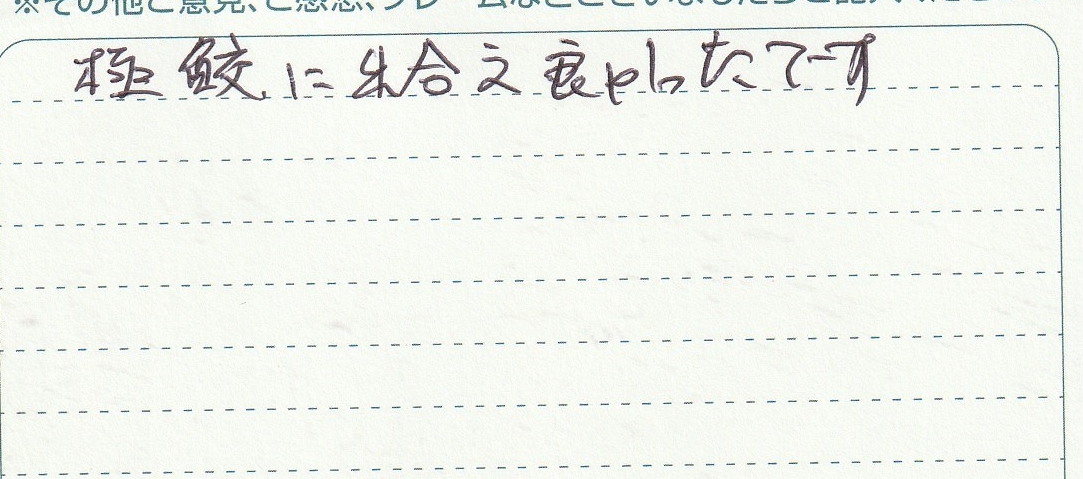 ※その他ご意見、ご感想、クレームなどございましたらご記入ください
極鮫に出合え良かったです